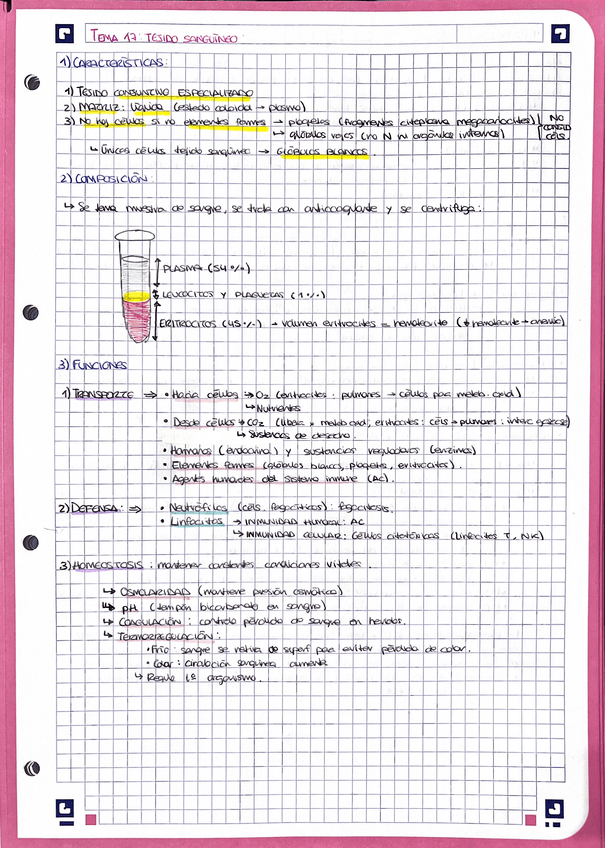 TEMA 17: TEJIDO SANGUÍNEO
1) CARACTERÍSTICAS:
1) TEJIDO CONJUNTIVO ESPECIALIZADO
2) MATRIZ: líquida (estado coloidal → plasma)
3) No hay células si no elementos formes → plaquetas (fragmentos citoplasma megacariocitos)
↳ glóbulos rojos (no N ni orgánulos internos)
NO
CONSID
CÉLS.
↳ Únicas células tejido sanguíneo → GLÓBULOS BLANCOS.
2) COMPOSICIÓN:
↳ Se toma muestra de sangre, se trata con anticoagulante y se centrifuga:
PLASMA (54%)
LEUCOCITOS Y PLAQUETAS (1%)
ERITROCITOS (45%) → volumen eritrocitos = hematocrito (↓ hematocrito → anemia)
3) FUNCIONES
1) TRANSPORTE ⇒ • Hacia células → O2 (eritrocitos: pulmones → células para metab. oxid)
↳ Nutrientes
• Desde células → CO2 (metab oxid, eritrocitos: céls → pulmones: interc gaseoso)
↳ Sustancias de desecho.
• Hormonas (endocrino) y sustancias reguladoras (enzimas)
• Elementos formes (glóbulos blancos, plaquetas, eritrocitos).
• Agentes humorales del sistema inmune (AC).
2) DEFENSA: ⇒ • Neutrófilos (céls. fagocíticas): fagocitosis.
• Linfocitos → INMUNIDAD HUMORAL: AC
↳ INMUNIDAD CELULAR: Células citotóxicas (Linfocitos T, NK)
3) HOMEOSTOSIS: mantener constantes condiciones vitales.
↳ OSMOLARIDAD (mantiene presión osmótica)
↳ pH (tampón bicarbonato en sangre)
↳ COAGULACIÓN: controla pérdida de sangre en heridas.
↳ TERMORREGULACIÓN:
• Frío: sangre se retira de superf para evitar pérdida de calor.
• Calor: circulación sanguínea aumenta
↳ Regula tª organismo.